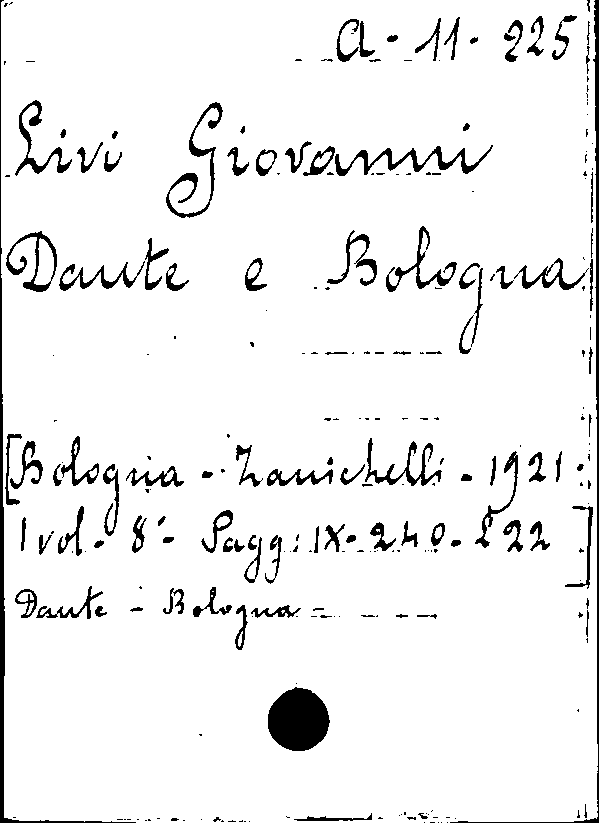 A - 11 - 225
Livi Giovanni
Dante e Bologna
[Bologna - Zanichelli - 1921.
1 vol. - 8° - Pagg: IX - 240 - £ 22]
Dante - Bologna =